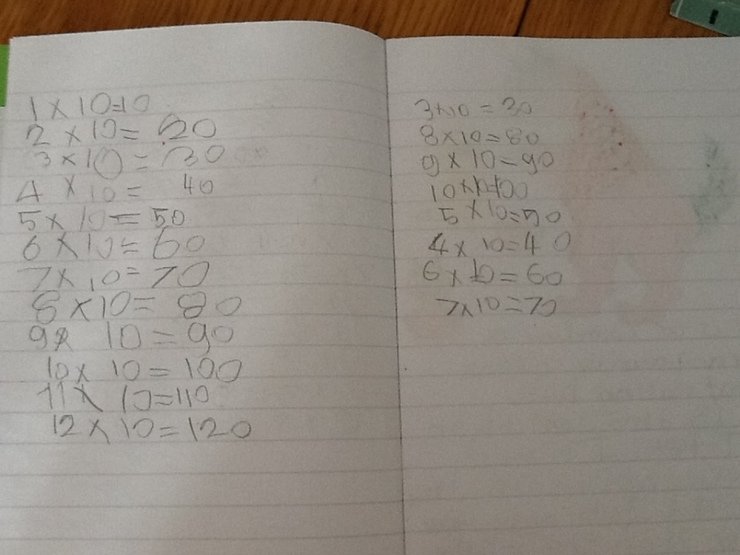 1 x 10=10
2 x 10= 20
3 x 10 = 30
4 x 10 = 40
5 x 10 = 50
6 x 10 = 60
7 x 10 = 70
8 x 10= 80
9 x 10 = 90
10 x 10 = 100
11 x 10=110
12 x 10=120
3x10 = 30
8x10=80
9 x 10=90
10 x 10=100
5 x 10=50
4 x 10=40
6 x 10=60
7x10=70